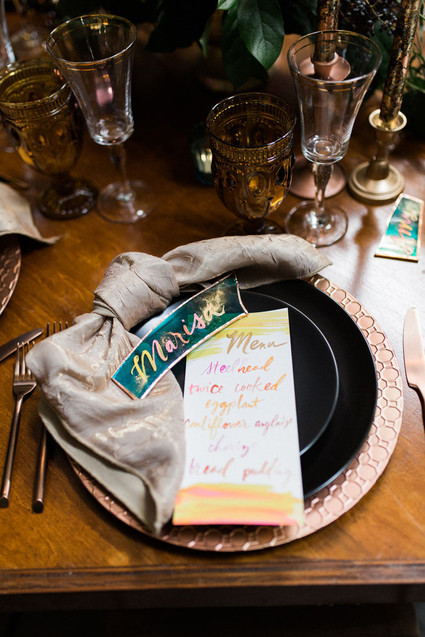 Marisa
Menu
steelhead
twice cooked
eggplant
cauliflower anglaise
bread pudding